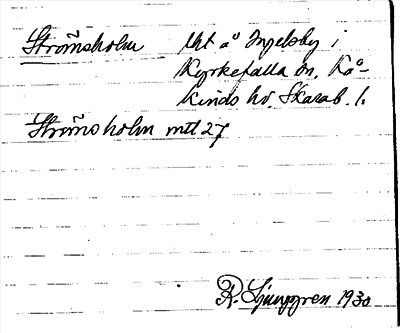 Strömsholm lht å Ingelsby i
Kyrkefalla sn, Kå-
kinds hd. Skarab. l.
Strömsholm mtl 27
R. Ljunggren 1930